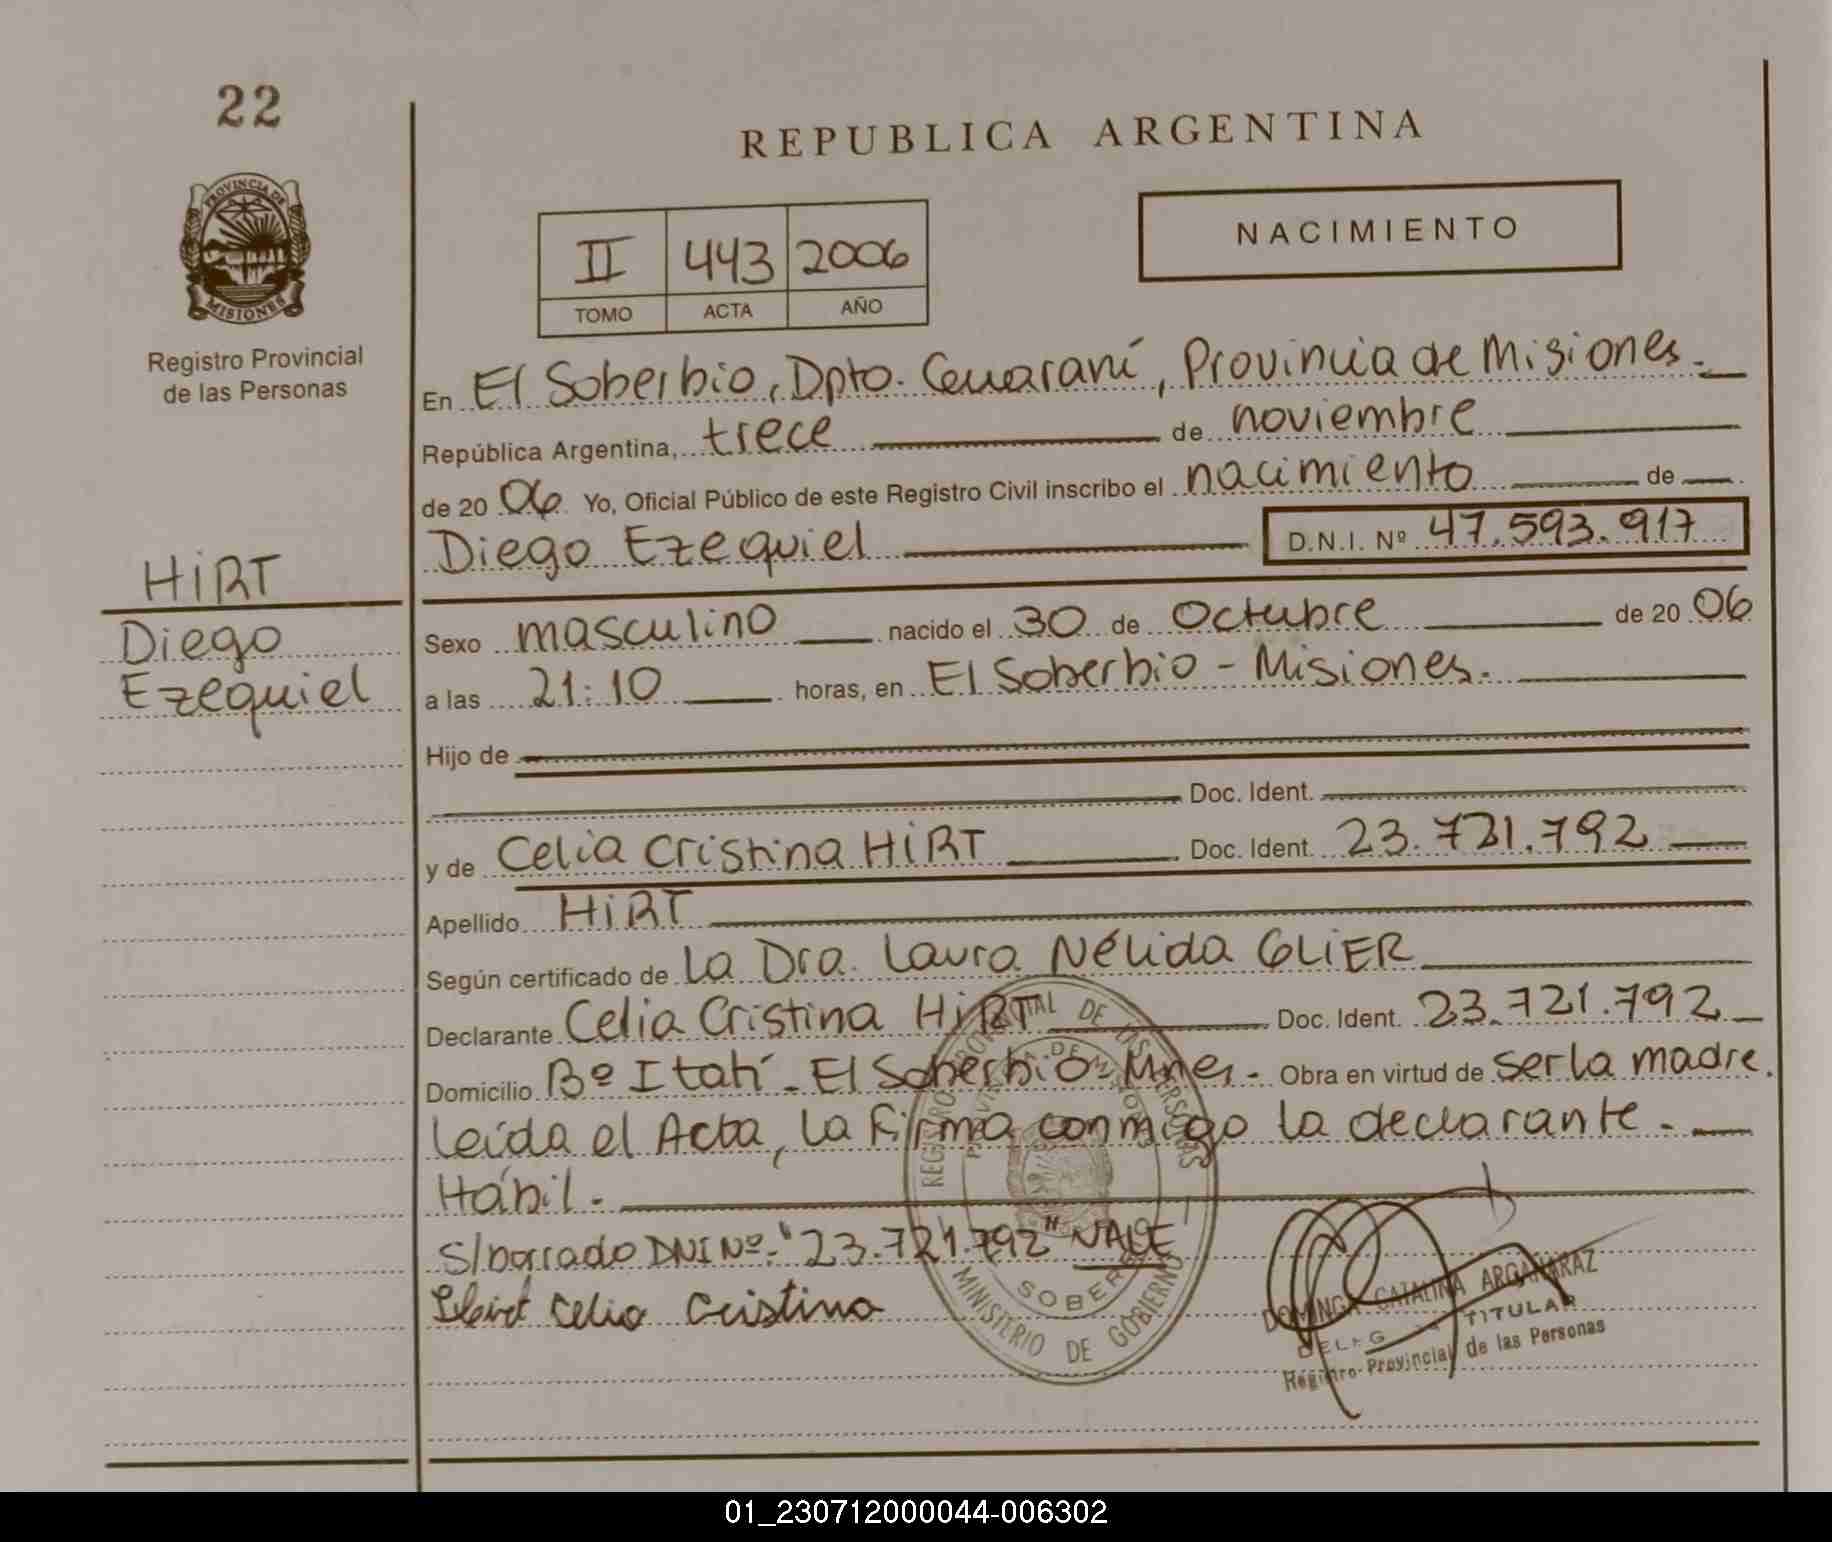 22
REPUBLICA ARGENTINA
PROVINCIA DE
MISIONES
Registro Provincial
de las Personas
NACIMIENTO
II 443 2006
TOMO ACTA AÑO
En El Soberbio, Dpto. Guaraní, Provincia de Misiones.
República Argentina, trece de noviembre
de 2006 Yo, Oficial Público de este Registro Civil inscribo el nacimiento de
Diego Ezequiel D.N.I. Nº 47.593.917
HIRT
Diego
Ezequiel
Sexo masculino nacido el 30 de Octubre de 2006
a las 21:10 horas, en El Soberbio - Misiones.
Hijo de
Doc. Ident.
y de Celia Cristina HIRT Doc. Ident. 23.721.792
Apellido HIRT
Según certificado de La Dra. Laura Nélida GLIER
Declarante Celia Cristina HIRT Doc. Ident. 23.721.792
Domicilio Bº Itatí - El Soberbio - Mnes - Obra en virtud de ser la madre.
Leída el Acta, la firma conmigo la declarante -
Hábil -
S/borrado DNI Nº: "23.721.792" VALE
Hirt Celia Cristina
REGISTRO PROVINCIAL DE LAS PERSONAS
PROVINCIA DE MISIONES
MINISTERIO DE GOBIERNO
DOMINGA CATALINA ARGAÑARAZ
TITULAR
Registro Provincial de las Personas
01_230712000044-006302